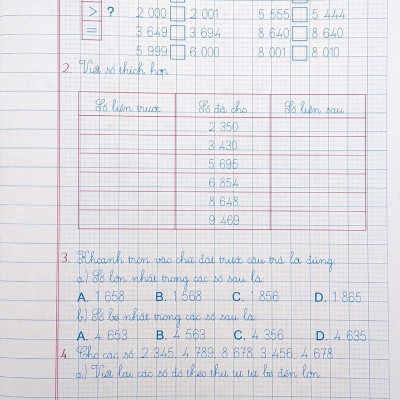 > ? 2 000 2 001 5 555 5 444
= 3 649 3 694 8 640 8 640
5 999 6 000 8 001 8 010
2. Viết số thích hợp
Số liền trước Số đã cho Số liền sau
2 350
3 430
5 695
6 854
8 648
9 469
3. Khoanh tròn vào chữ đặt trước câu trả lời đúng
a) Số lớn nhất trong các số sau là
A. 1 658 B. 1 568 C. 1 856 D. 1 865
b) Số bé nhất trong các số sau là
A. 4 653 B. 4 563 C. 4 356 D. 4 635
4. Cho các số 2 345, 4 789, 8 678, 3 456, 4 678
a) Viết lại các số đó theo thứ tự từ bé đến lớn